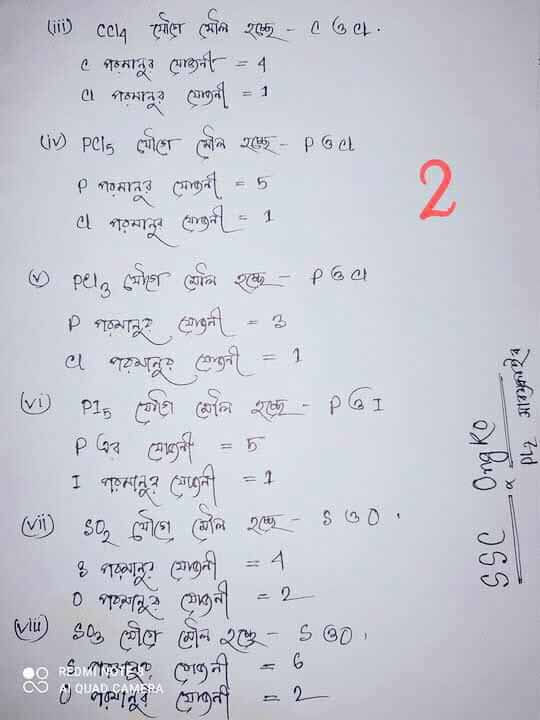 (iii) CCl4 যৌগে মৌল হচ্ছে - C ও Cl.
C পরমানুর যোজনী = 4
Cl পরমানুর যোজনী = 1
(iv) PCl5 যৌগে মৌল হচ্ছে - P ও Cl
P পরমানুর যোজনী = 5
Cl পরমানুর যোজনী = 1
2
(v) PCl3 যৌগে মৌল হচ্ছে - P ও Cl
P পরমানুর যোজনী = 3
Cl পরমানুর যোজনী = 1
(vi) PI5 যৌগে মৌল হচ্ছে - P ও I
P এর যোজনী = 5
I পরমানুর যোজনী = 1
(vii) SO2 যৌগে মৌল হচ্ছে - S ও O.
S পরমানুর যোজনী = 4
O পরমানুর যোজনী = 2
(viii) SO3 যৌগে মৌল হচ্ছে - S ও O,
S পরমানুর যোজনী = 6
O পরমানুর যোজনী = 2
SSC Ong Ko
REDMI NOTE 8
AI QUAD CAMERA